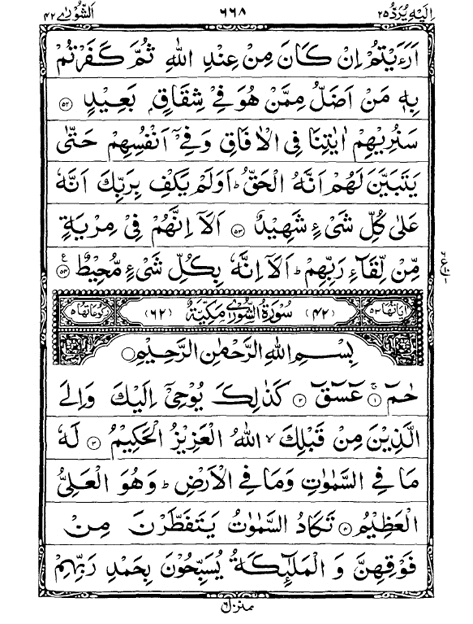 اليه يرد ٢٥ ٦٦٨ الشورى ٤٢
اَرَءَيْتُمْ اِنْ كَانَ مِنْ عِنْدِ اللّٰهِ ثُمَّ كَفَرْتُمْ
بِهٖ مَنْ اَضَلُّ مِمَّنْ هُوَ فِيْ شِقَاقٍۭ بَعِيْدٍ ﴿٥٢﴾
سَنُرِيْهِمْ اٰيٰتِنَا فِي الْاٰفَاقِ وَفِيْٓ اَنْفُسِهِمْ حَتّٰى
يَتَبَيَّنَ لَهُمْ اَنَّهُ الْحَقُّ ؕ اَوَلَمْ يَكْفِ بِرَبِّكَ اَنَّهٗ
عَلٰى كُلِّ شَيْءٍ شَهِيْدٌ ﴿٥٣﴾ اَلَاۤ اِنَّهُمْ فِيْ مِرْيَةٍ
مِّنْ لِّقَآءِ رَبِّهِمْ ؕ اَلَاۤ اِنَّهٗ بِكُلِّ شَيْءٍ مُّحِيْطٌ ﴿٥٤﴾ ع
اٰيَاتُهَا ٥٣ (٤٢) سُوْرَةُ الشُّوْرٰى مَكِّيَّةٌ (٦٢) رُكُوْعَاتُهَا ٥
بِسْمِ اللّٰهِ الرَّحْمٰنِ الرَّحِيْمِ
حٰمٓ ﴿١﴾ عٓسٓقٓ ﴿٢﴾ كَذٰلِكَ يُوْحِيْٓ اِلَيْكَ وَاِلَى
الَّذِيْنَ مِنْ قَبْلِكَ ۙ اللّٰهُ الْعَزِيْزُ الْحَكِيْمُ ﴿٣﴾ لَهٗ
مَا فِي السَّمٰوٰتِ وَمَا فِي الْاَرْضِ ؕ وَهُوَ الْعَلِيُّ
الْعَظِيْمُ ﴿٤﴾ تَكَادُ السَّمٰوٰتُ يَتَفَطَّرْنَ مِنْ
فَوْقِهِنَّ وَ الْمَلٰٓئِكَةُ يُسَبِّحُوْنَ بِحَمْدِ رَبِّهِمْ
منزل ٦